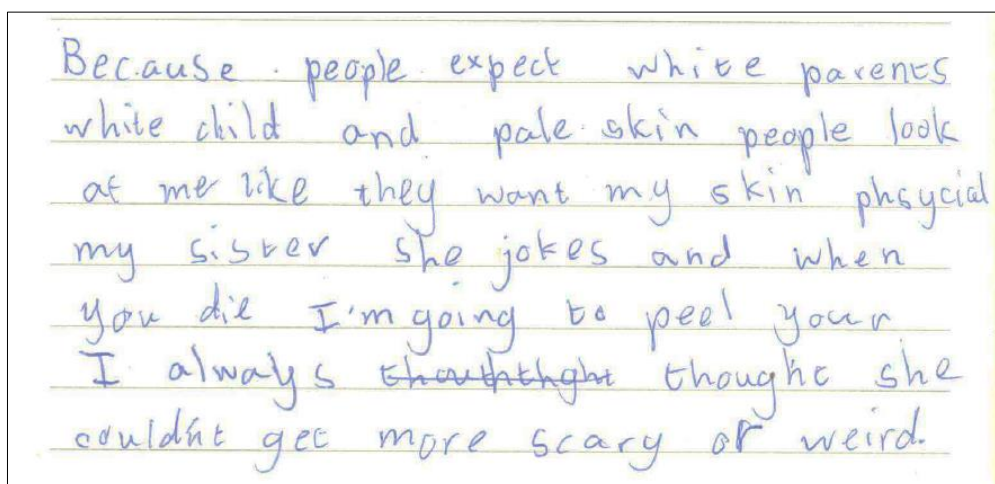 Because people expect white parents
white child and pale skin people look
at me like they want my skin phsycial
my sister she jokes and when
you die I'm going to peel your
I always thouththght thought she
couldn't get more scary or weird.